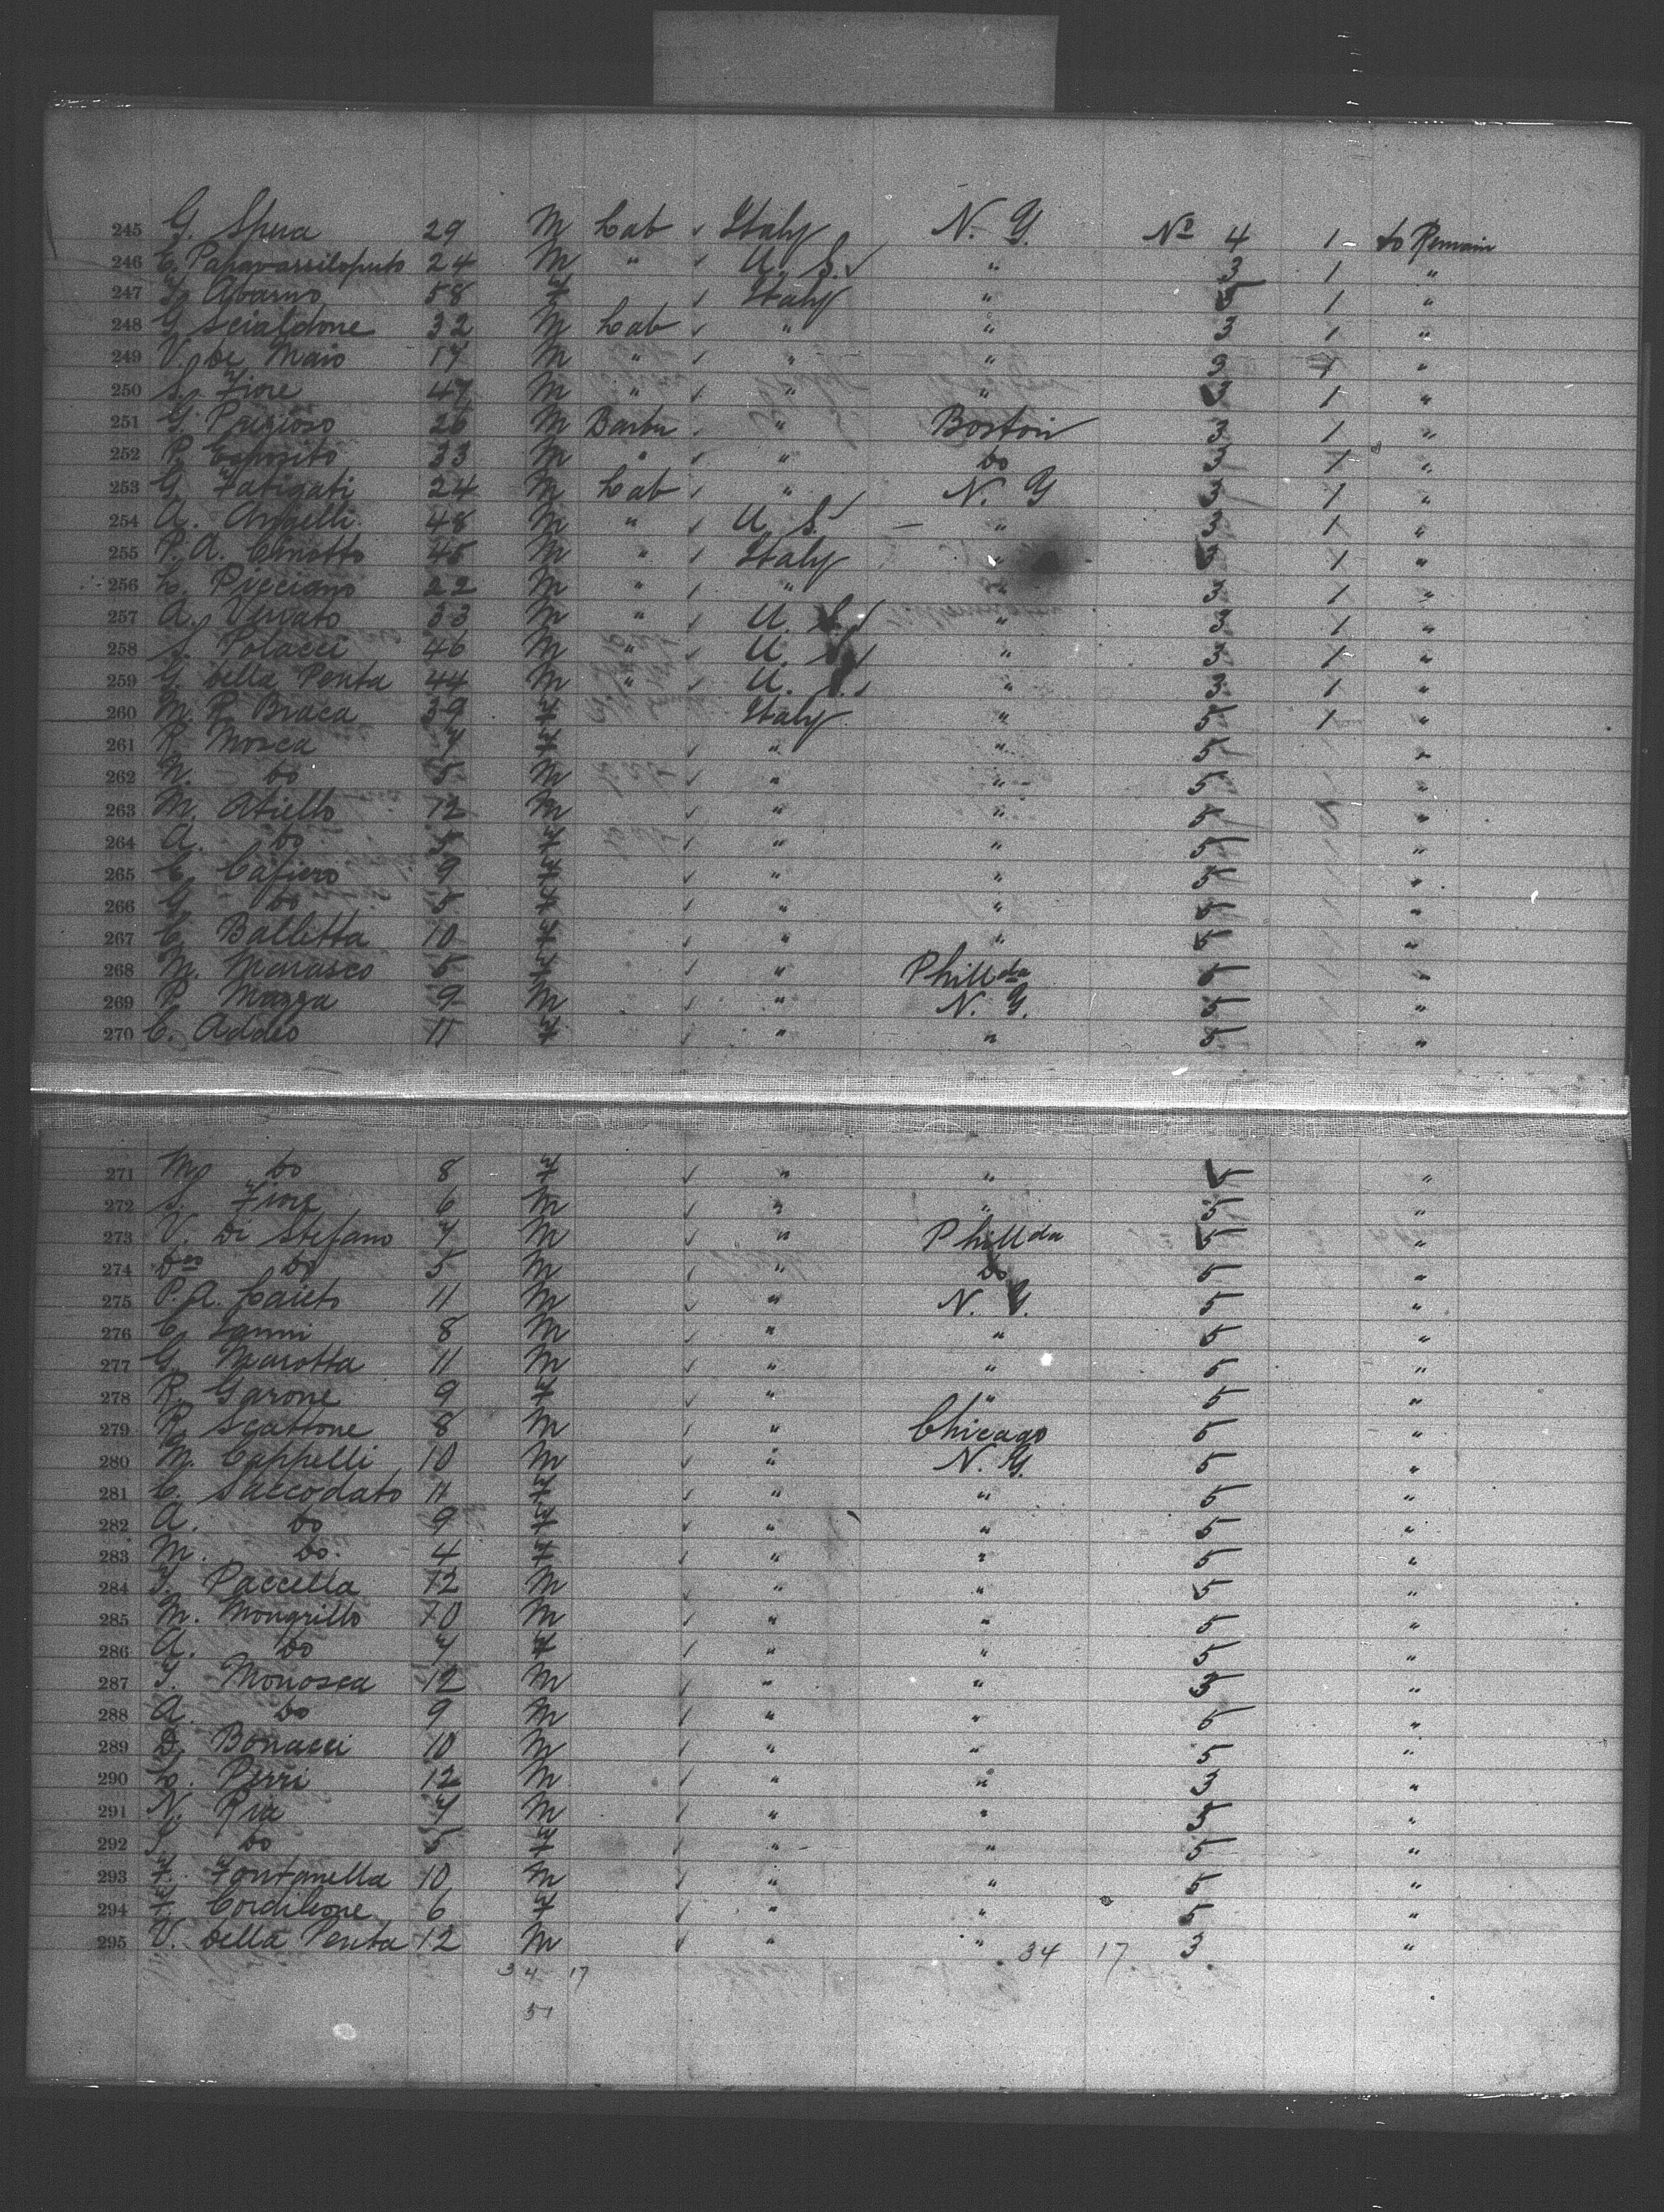 245 G. Spera 29 M Lab ✓ Italy N. Y. Nº 4 1 to Remain
246 C. Papavassilopulo 24 M " ✓ U. S. ✓ " 3 1 "
247 Abarno 58 F ✓ Italy " 5 1 "
248 G Scialdone 32 M Lab ✓ " " 3 1 "
249 V. De Maio 17 M " ✓ " " 3 1 "
250 S. Fiore 47 M " ✓ " " 3 1 "
251 G. Prezioso 26 M Barber " Boston 3 1 "
252 P. Esposito 33 M " ✓ " Do 3 1 "
253 G. Fatigati 24 M Lab ✓ " N. Y 3 1 "
254 A. Angelli 48 M " ✓ U. S. ✓ — " 3 1 "
255 P. A. 45 M " ✓ Italy " 3 1 "
256 L. Picciano 22 M " ✓ " " 3 1 "
257 A. Vervato 33 M " ✓ U. S. ✓ " 3 1 "
258 S. Polacci 46 M " ✓ U. S. ✓ " 3 1 "
259 G. Della Penta 44 M " ✓ U. S. ✓ " 3 1 "
260 M. R. Braca 39 F Italy " 5 1 "
261 R. Mosca 7 F ✓ " " 5 "
262 N. Do 5 M ✓ " " 5 "
263 M. Atiello 12 M ✓ " " 5 "
264 A. Do 5 F ✓ " " 5 "
265 C. Cafiero 9 F ✓ " " 5 "
266 G Do 5 F ✓ " " 5 "
267 C. Balletta 10 F ✓ " " 5 "
268 M. Marasco 5 F ✓ " Phillda 5 "
269 P. Mazza 9 M " N. Y. 5 "
270 C. Addeo 11 F ✓ " " 5 "
271 Mo Do 8 F ✓ " " 5 "
272 S. Fiore 6 M ✓ " " 5 "
273 V. Di Stefano 7 M ✓ " Phillda 5 "
274 Do 5 M ✓ " Do 5 "
275 P. A. 11 M ✓ " N. Y. 5 "
276 C. Ianni 8 M ✓ " " 5 "
277 G. Marotta 11 M ✓ " " 5 "
278 R. Garone 9 F ✓ " " 5 "
279 R. Scattone 8 M ✓ " Chicago 5 "
280 M. Cappelli 10 M ✓ " N. Y. 5 "
281 C. Saccodato 11 F ✓ " " 5 "
282 A. Do 9 F ✓ " " 5 "
283 M. Do. 4 F ✓ " " 5 "
284 Paccella 12 M ✓ " " 5 "
285 M. Mongrillo 10 M ✓ " " 5 "
286 A. Do 7 F ✓ " " 5 "
287 Monosca 12 M ✓ " " 3 "
288 A. Do 9 M ✓ " " 5 "
289 D. Bonacci 10 M ✓ " " 5 "
290 L. Perri 12 M ✓ " " 3 "
291 N. Ria 7 M ✓ " " 5 "
292 Do 5 F ✓ " " 5 "
293 F. Fontanella 10 M ✓ " " 5 "
294 F. Cordileone 6 F ✓ " " 5 "
295 V. Della Penta 12 M ✓ " " 34 17 3 "
34 17
51